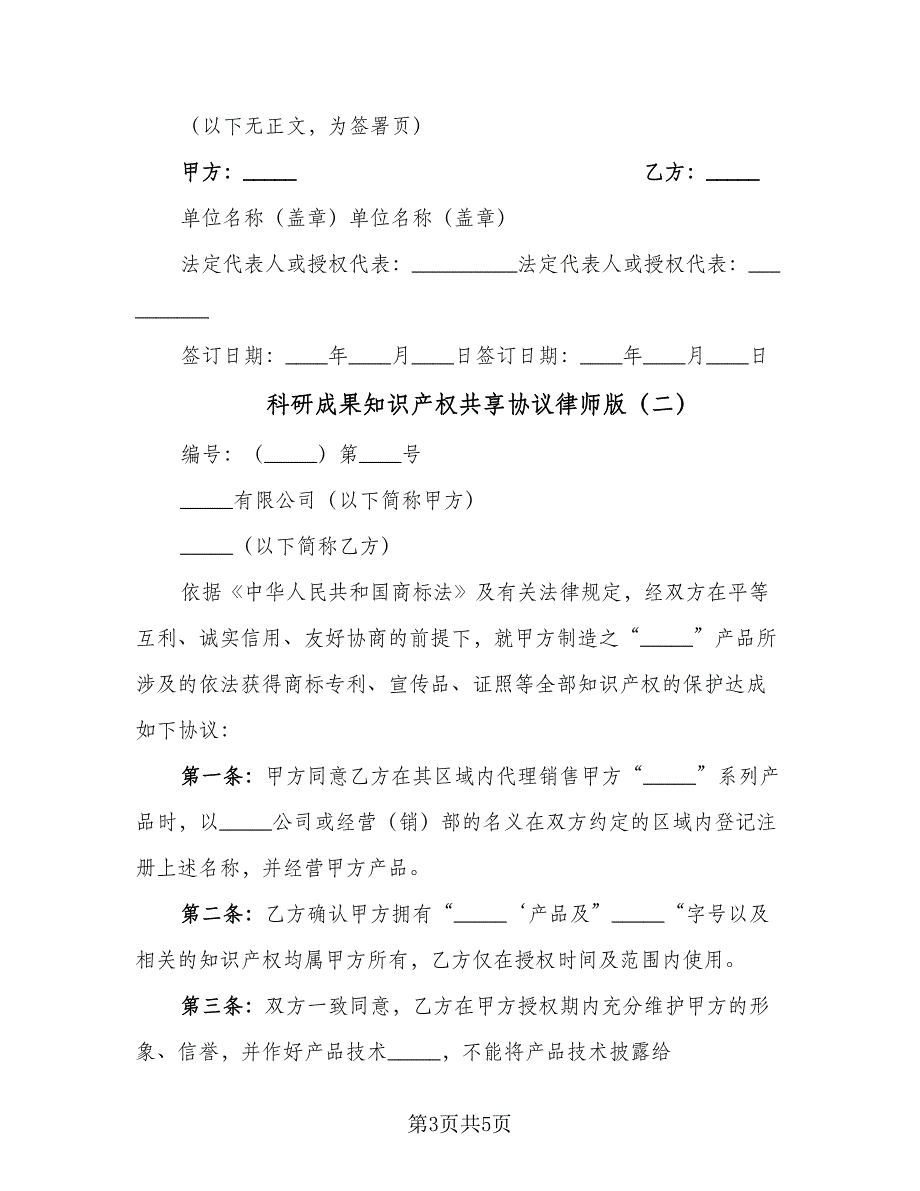 （以下无正文，为签署页）
甲方：_____ 乙方：_____
单位名称（盖章）单位名称（盖章）
法定代表人或授权代表：__________法定代表人或授权代表：___
_______
签订日期：____年____月____日签订日期：____年____月____日
科研成果知识产权共享协议律师版（二）
编号：（_____）第____号
_____有限公司（以下简称甲方）
_____（以下简称乙方）
依据《中华人民共和国商标法》及有关法律规定，经双方在平等
互利、诚实信用、友好协商的前提下，就甲方制造之“_____”产品所
涉及的依法获得商标专利、宣传品、证照等全部知识产权的保护达成
如下协议：
第一条：甲方同意乙方在其区域内代理销售甲方“_____”系列产
品时，以_____公司或经营（销）部的名义在双方约定的区域内登记注
册上述名称，并经营甲方产品。
第二条：乙方确认甲方拥有“_____‘产品及”_____“字号以及
相关的知识产权均属甲方所有，乙方仅在授权时间及范围内使用。
第三条：双方一致同意，乙方在甲方授权期内充分维护甲方的形
象、信誉，并作好产品技术_____，不能将产品技术披露给
第3页共5页